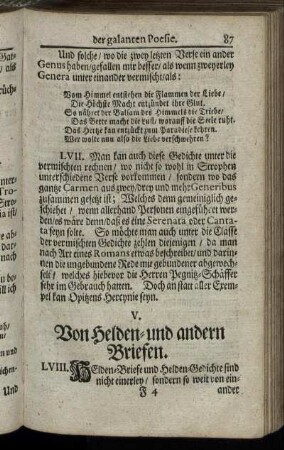 der galanten Poesie. 87
Und solche / wo die zwey letzten Verse ein ander
Genus haben / gefallen mir besser / als wenn zweyerley
Genera unter einander vermischt / als:
Vom Himmel entstehen die Flammen der Liebe /
Die Höchste Macht entzündet ihre Glut.
So nähret der Balsam des Himmels die Triebe /
Das Bette macht die Lust, worauff die Seele ruht.
Das Hertze kan entzückt zum Paradiese kehren.
Wer wolte nun also die Liebe verschwehren?
LVII. Man kan auch diese Gedichte unter die
vermischten rechnen / wo nicht so wohl in Strophen
unterschiedene Verse vorkommen / sondern wo das
gantze Carmen aus zwey / drey und mehr Generibus
zusammen gesetzt ist; Welches denn gemeiniglich ge-
schiehet / wenn allerhand Personen eingeführet wer-
den / es wäre denn / daß es eine Serenata oder Canta-
ta seyn solte. So möchte man auch unter die Classe
der vermischten Gedichte zehlen diejenigen / da man
nach Art eines Romans etwas beschreibet / und darin-
nen die ungebundene Rede mit gebundener abgewech-
selt / welches hiebevor die Herren Pegnitz-Schäffer
sehr im Gebrauch hatten. Doch anstatt aller Exem-
pel kan Opitzens Hercynie seyn.
V.
Von Helden- und andern
Briefen.
LVIII. Helden-Briefe und Helden-Gedichte sind
nicht einerley / sondern so weit von ein-
J 4 ander